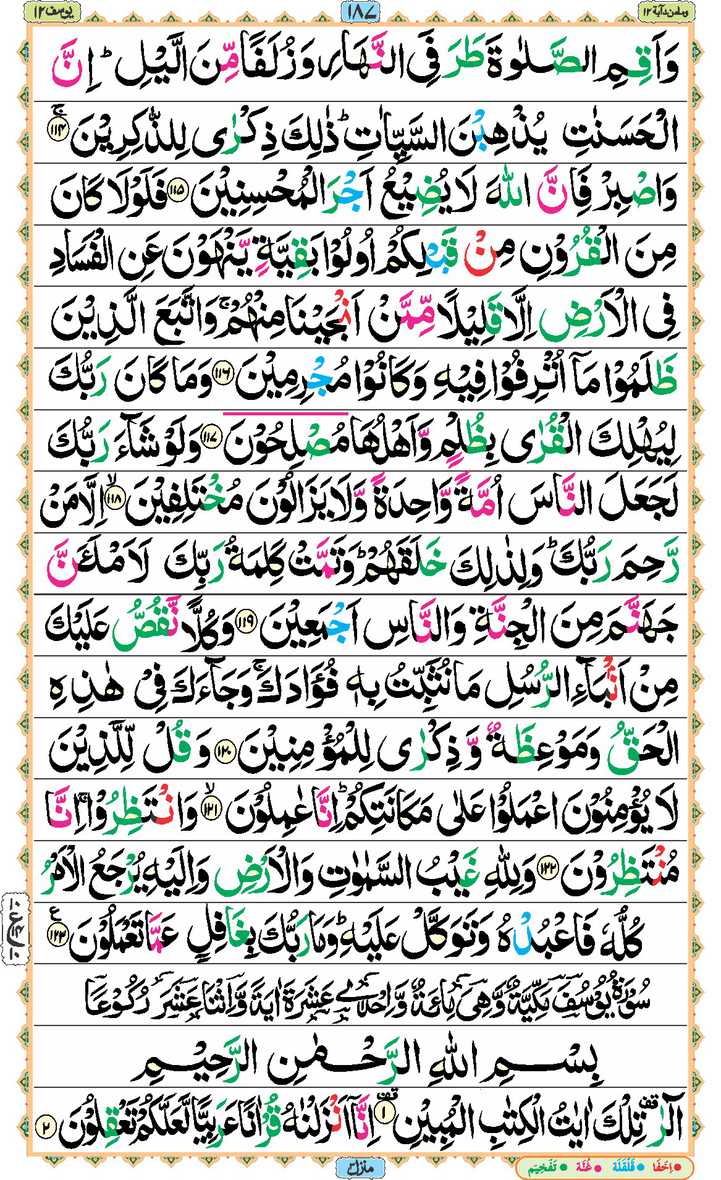 ومامن دآبة ١٢ ١٨٧ يوسف ١٢
وَاَقِمِ الصَّلٰوةَ طَرَفَىِ النَّهَارِ وَزُلَفًا مِّنَ الَّيْلِ ؕ اِنَّ
الْحَسَنٰتِ يُذْهِبْنَ السَّيِّاٰتِ ؕ ذٰلِكَ ذِكْرٰى لِلذّٰكِرِيْنَ ۚ ﴿۱۱۴﴾
وَاصْبِرْ فَاِنَّ اللّٰهَ لَا يُضِيْعُ اَجْرَ الْمُحْسِنِيْنَ ﴿۱۱۵﴾ فَلَوْلَا كَانَ
مِنَ الْقُرُوْنِ مِنْ قَبْلِكُمْ اُولُوْا بَقِيَّةٍ يَّنْهَوْنَ عَنِ الْفَسَادِ
فِى الْاَرْضِ اِلَّا قَلِيْلًا مِّمَّنْ اَنْجَيْنَا مِنْهُمْ ۚ وَاتَّبَعَ الَّذِيْنَ
ظَلَمُوْا مَاۤ اُتْرِفُوْا فِيْهِ وَكَانُوْا مُجْرِمِيْنَ ﴿۱۱۶﴾ وَمَا كَانَ رَبُّكَ
لِيُهْلِكَ الْقُرٰى بِظُلْمٍ وَّاَهْلُهَا مُصْلِحُوْنَ ﴿۱۱۷﴾ وَلَوْ شَآءَ رَبُّكَ
لَجَعَلَ النَّاسَ اُمَّةً وَّاحِدَةً وَّلَا يَزَالُوْنَ مُخْتَلِفِيْنَ ۙ ﴿۱۱۸﴾ اِلَّا مَنْ
رَّحِمَ رَبُّكَ ؕ وَلِذٰلِكَ خَلَقَهُمْ ؕ وَتَمَّتْ كَلِمَةُ رَبِّكَ لَاَمْلَـَٔنَّ
جَهَنَّمَ مِنَ الْجِنَّةِ وَالنَّاسِ اَجْمَعِيْنَ ﴿۱۱۹﴾ وَكُلًّا نَّقُصُّ عَلَيْكَ
مِنْ اَنْۢبَآءِ الرُّسُلِ مَا نُثَبِّتُ بِهٖ فُؤَادَكَ ۚ وَجَآءَكَ فِىْ هٰذِهِ
الْحَقُّ وَمَوْعِظَةٌ وَّذِكْرٰى لِلْمُؤْمِنِيْنَ ﴿۱۲۰﴾ وَقُلْ لِّلَّذِيْنَ
لَا يُؤْمِنُوْنَ اعْمَلُوْا عَلٰى مَكَانَتِكُمْ ؕ اِنَّا عٰمِلُوْنَ ۙ ﴿۱۲۱﴾ وَانْتَظِرُوْا ۚ اِنَّا
مُنْتَظِرُوْنَ ﴿۱۲۲﴾ وَلِلّٰهِ غَيْبُ السَّمٰوٰتِ وَالْاَرْضِ وَاِلَيْهِ يُرْجَعُ الْاَمْرُ
كُلُّهٗ فَاعْبُدْهُ وَتَوَكَّلْ عَلَيْهِ ؕ وَمَا رَبُّكَ بِغَافِلٍ عَمَّا تَعْمَلُوْنَ ﴿۱۲۳﴾ ع
سُوْرَةُ يُوْسُفَ مَكِّيَّةٌ وَّهِىَ مِائَةٌ وَّاِحْدٰى عَشَرَةَ اٰيَةً وَّاثْنَا عَشَرَ رُكُوْعًا
بِسْمِ اللّٰهِ الرَّحْمٰنِ الرَّحِيْمِ
الٓرٰ تِلْكَ اٰيٰتُ الْكِتٰبِ الْمُبِيْنِ ﴿۱﴾ اِنَّاۤ اَنْزَلْنٰهُ قُرْءٰنًا عَرَبِيًّا لَّعَلَّكُمْ تَعْقِلُوْنَ ﴿۲﴾
منزل ٣
اِخفَا قَلقَلَہ غُنَّه تَفخِيم